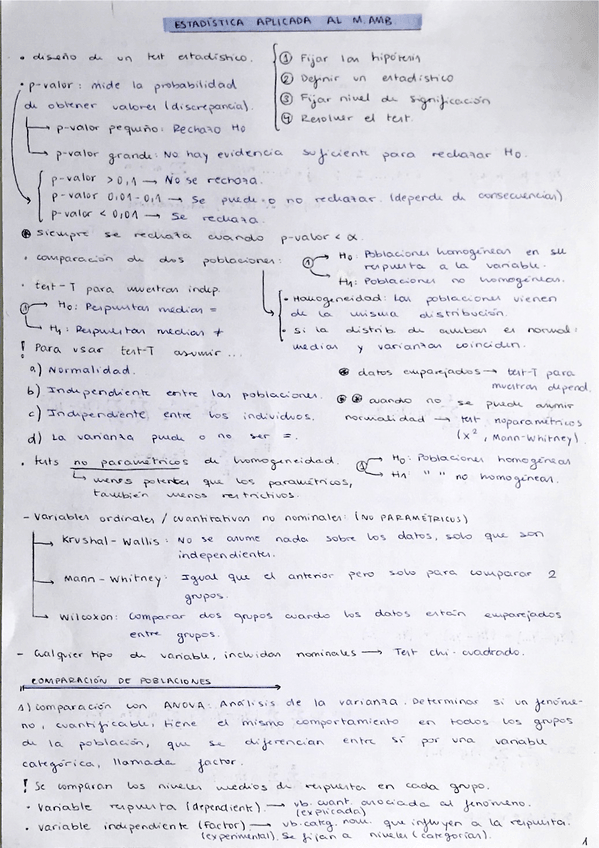 ESTADÍSTICA APLICADA AL M.AMB.
• diseño de un test estadístico.
① Fijar las hipótesis
② Definir un estadístico
③ Fijar nivel de significación
④ Resolver el test.
• p-valor: mide la probabilidad
de obtener valores (discrepancia).
→ p-valor pequeño: Rechazo H0
→ p-valor grande: No hay evidencia suficiente para rechazar H0.
p-valor > 0,1 → No se rechaza.
p-valor 0,01-0,1 → Se puede o no rechazar. (depende de consecuencias)
p-valor < 0,01 → Se rechaza.
⊛ Siempre se rechaza cuando p-valor < α.
• comparación de dos poblaciones:
① → H0: Poblaciones homogéneas en su
respuesta a la variable.
→ H1: Poblaciones no homogéneas.
- Homogeneidad: las poblaciones vienen
de la misma distribución.
- Si la distrib. de ambas es normal:
medias y varianzas coinciden.
• test-T para muestras indep.
① → H0: Respuestas medias =
→ H1: Respuestas medias ≠
! Para usar test-T asumir...
a) Normalidad.
b) Independiente entre las poblaciones.
c) Independiente entre los individuos.
d) La varianza puede o no ser =.
⊛ datos emparejados → test-T para
muestras depend.
⊛ ⊛ cuando no se puede asumir
normalidad → test noparamétricos
(x², Mann-Whitney).
• tests no paramétricos de homogeneidad.
① → H0: Poblaciones homogéneas
→ H1: " " no homogéneas.
→ menos potentes que los paramétricos,
también menos restrictivos.
- Variables ordinales / cuantitativas no nominales: (NO PARAMÉTRICOS)
→ Kruskal-Wallis: No se asume nada sobre los datos, solo que son
independientes.
→ Mann-Whitney: Igual que el anterior pero solo para comparar 2
grupos.
→ Wilcoxon: Comparar dos grupos cuando los datos están emparejados
entre grupos.
- Cualquier tipo de variable, incluidas nominales → Test chi-cuadrado.
COMPARACIÓN DE POBLACIONES
1) Comparación con ANOVA: Análisis de la varianza. Determinar si un fenóme-
no, cuantificable, tiene el mismo comportamiento en todos los grupos
de la población, que se diferencian entre sí por una variable
categórica, llamada factor.
! Se comparan los niveles medios de respuesta en cada grupo.
• Variable respuesta (dependiente) → vb. cuant. asociada al fenómeno.
(explicada)
• Variable independiente (Factor) → vb. categ. nom. que influyen a la respuesta.
(experimental). Se fijan a niveles (categorías).
1